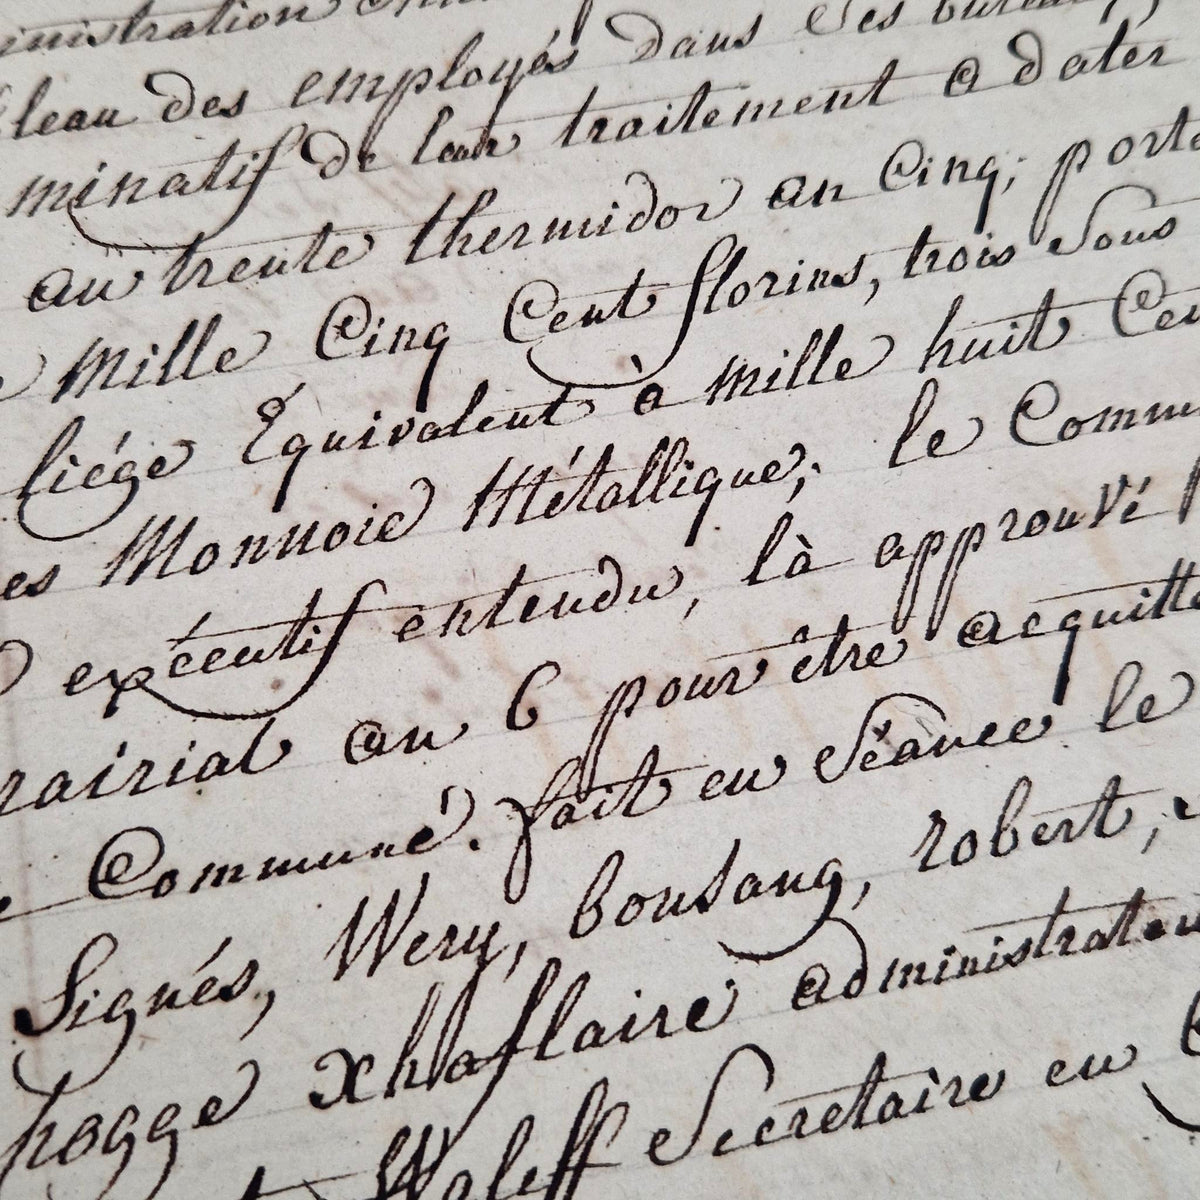 inistration
leau des employés dans ses bureau
minatif de leur traitement a dater
au trente thermidor an Cinq; porta
Mille Cinq Cent florins, trois sous
liége Equivalent à mille huit Cen
es Monnoie Métallique; le Comm
exécutif entendu, là approuvé
rairial an 6 pour être acquitté
Communé. fait en Séance le
Signés, Wery, bousang, robert,
hogge xhaflaire administrateu
Waleff Secretaire en